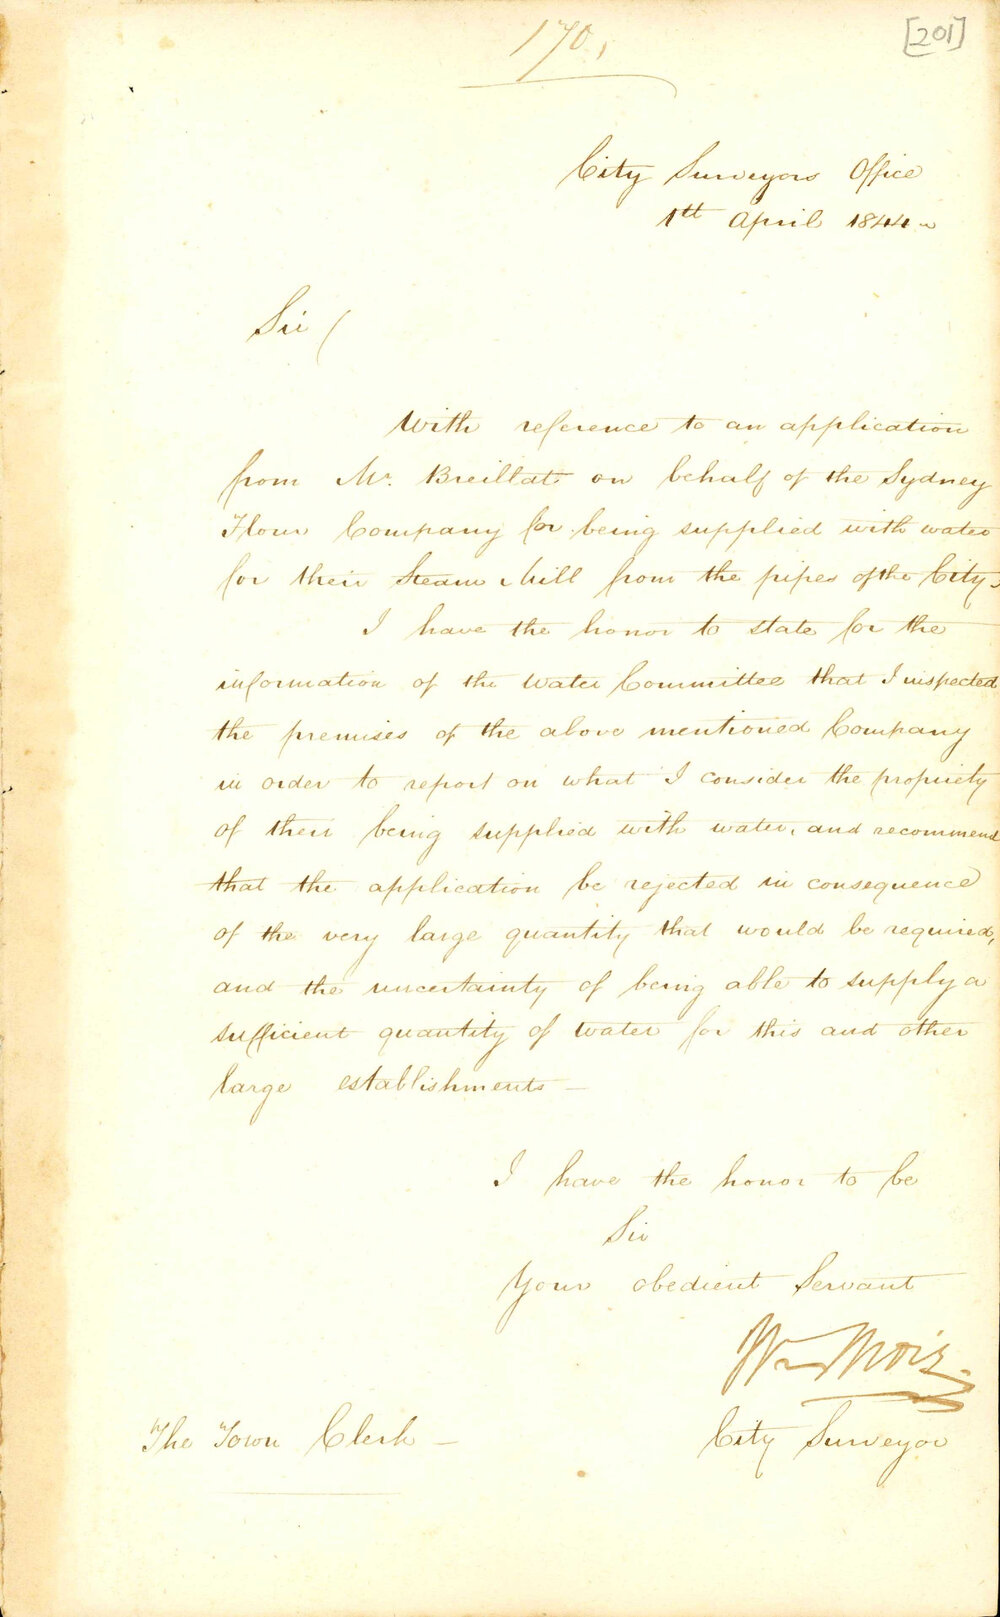 170,
[201]
City Surveyors Office
1th April 1844
Sir (
With reference to an application
from Mr. Breillat on behalf of the Sydney
Flour Company for being supplied with water
for their Steam Mill from the pipes of the City,
I have the honor to state for the
information of the Water Committee that I inspected
the premises of the above mentioned Company
in order to report on what I consider the propriety
of their being supplied with water, and recommend
that the application be rejected in consequence
of the very large quantity that would be required,
and the uncertainty of being able to supply a
sufficient quantity of water for this and other
large establishments —
I have the honor to be
Sir
Your obedient Servant
Wm Moir
City Surveyor
The Town Clerk —